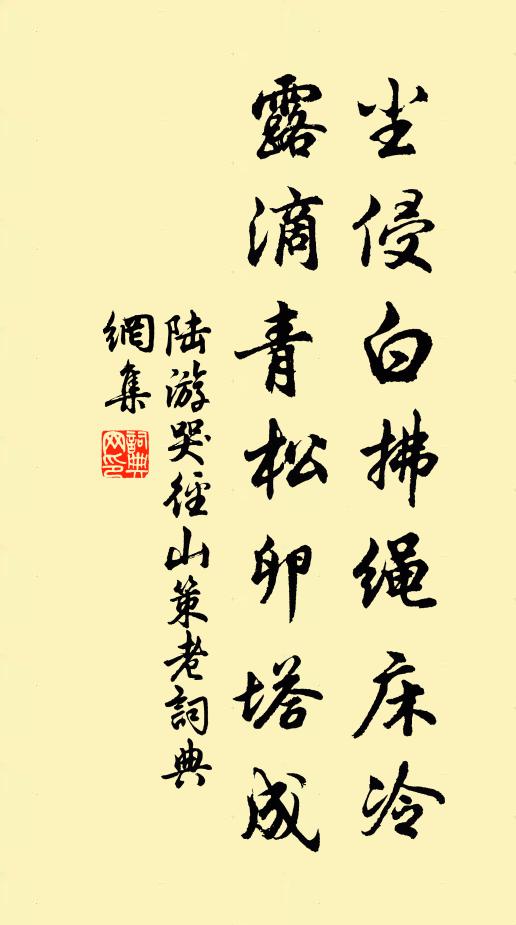 尘侵白拂绳床冷
露滴青松卵塔成
陆游哭径山策老詞典
網集
詞典
网印